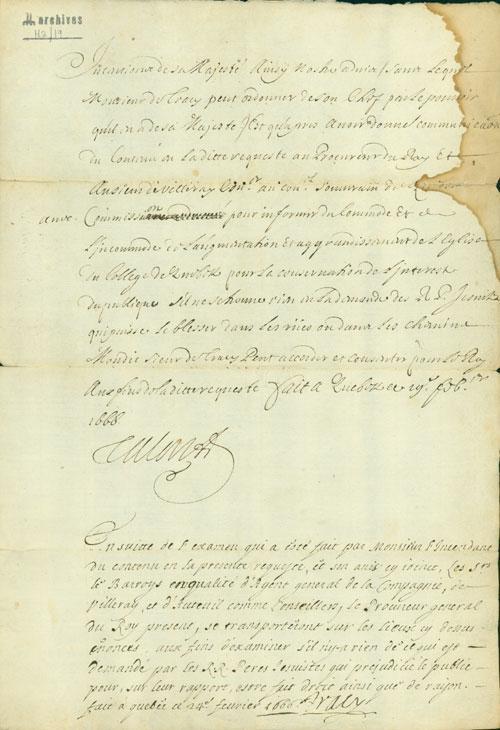 archives
H2/19
de sa Majesté Ainsy sans Lequel
Monsieur de Tracy peut ordonner de son Chef par Le pouvoir
qu'il a de sa Majesté Est apres Avoir donné
du Contenu en Laditte requeste au Procureur du Roy Et
Au sieur de Villeray Con.er au con.l Souverain
avec Commission pour informer du Commode Et de
L'incommode de L'augmentation Et aggrandissement de L'Eglise
du College de Quebek pour La conservation de L'interest
du publique s'il ne se trouve rien en La demande des R. P. Jesuites
qui puisse le blesser dans les ou dans les
Mondit sieur de Tracy Peut accorder et consentir pour Le Roy
Aux fins de laditte requeste Fait a Quebek ce 19.e
1668
Talon
En suitte de l'examen qui a esté fait par Monsieur l'Intendant
du contenu en la presente requeste, et son avis cy , Les S.rs
le Barroys en qualité d'Agent general de la Compagnie, de
Villeray, et d'Auteuil comme Conseillers, le Procureur general
du Roy present, se transporteront sur les lieux cy dessus
enoncés, aux fins d'examiner s'il n'y a rien de ce qui est
demandé par les RR. Peres Jesuites qui prejudicie le public
pour, sur leur rapport, estre fait droit ainsi que de raison.
fait a quebec ce 24.e fevrier Tracy